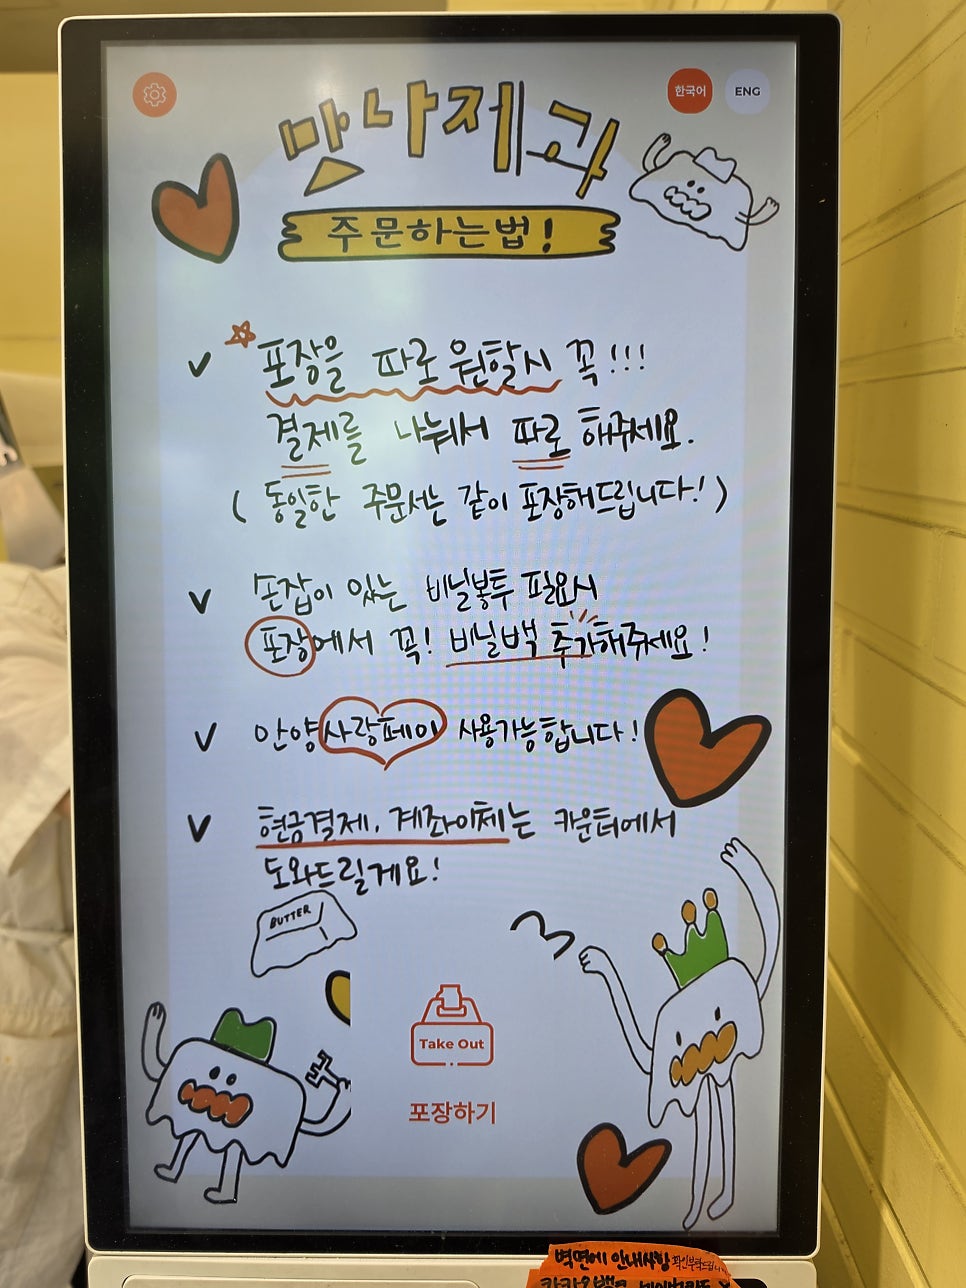 한국어
ENG
맛나제과
주문하는법!
포장을 따로 원할시 꼭!!!
결제를 나눠서 따로 해주세요.
(동일한 주문서는 같이 포장해드립니다!)
손잡이 있는 비닐봉투 필요시
포장에서 꼭! 비닐백 추가해주세요!
안양사랑페이 사용가능합니다!
현금결제, 계좌이체는 카운터에서
도와드릴게요!
BUTTER
Take Out
포장하기
벽면에 안내사항